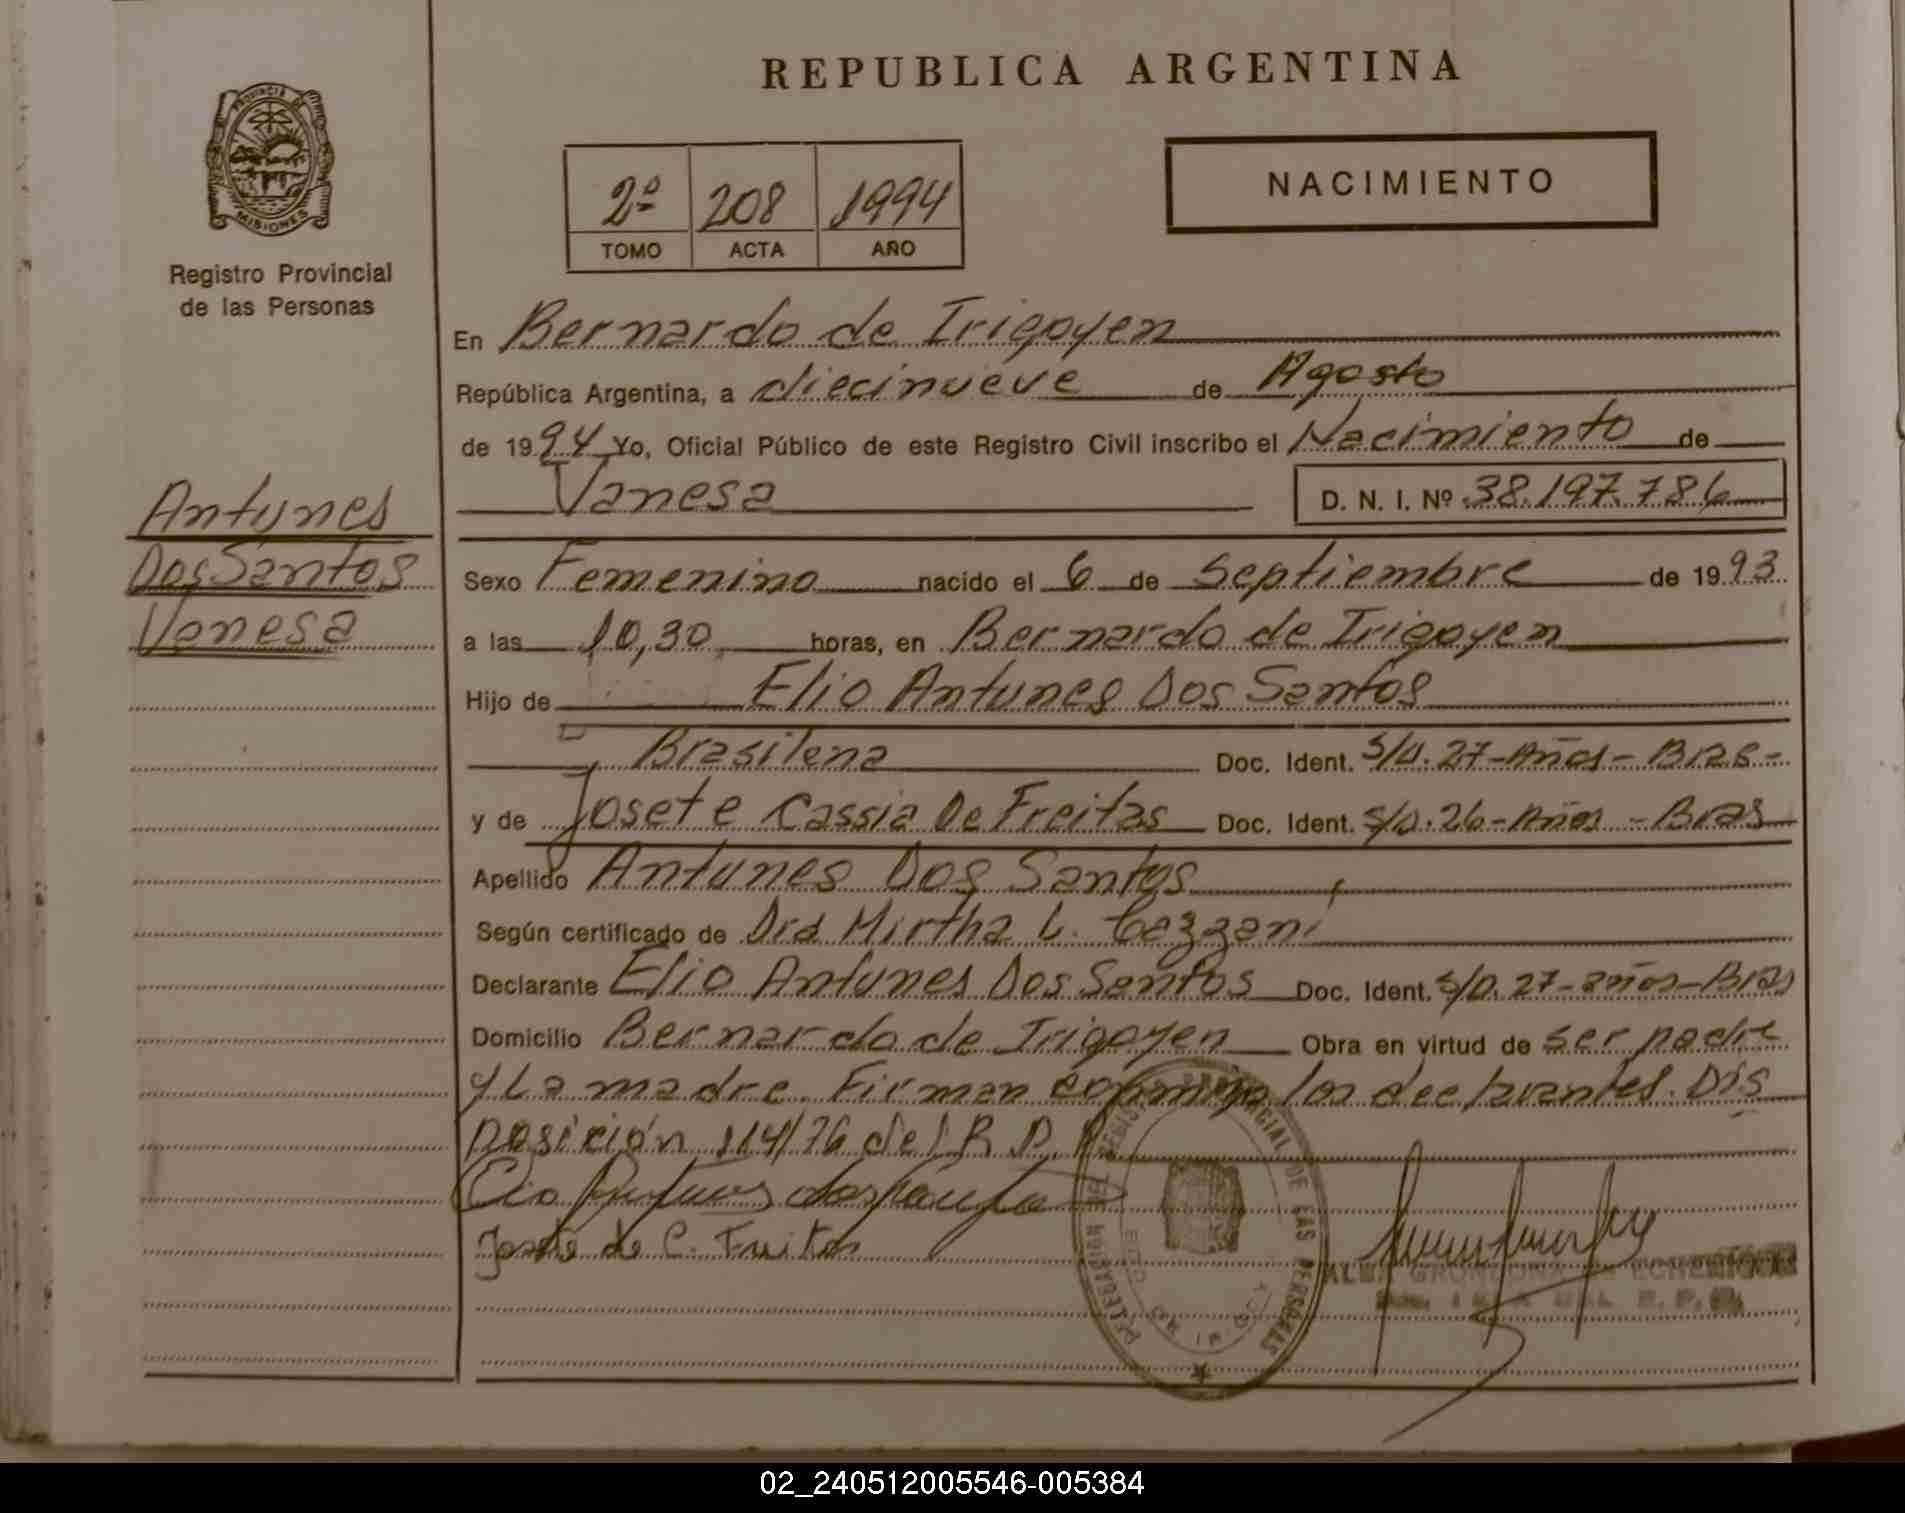 REPUBLICA ARGENTINA
PROVINCIA DE
MISIONES
Registro Provincial
de las Personas
2º 208 1994
TOMO ACTA AÑO
NACIMIENTO
Antunes
Dos Santos
Vanesa
En Bernardo de Irigoyen
República Argentina, a diecinueve de Agosto
de 1994 Yo, Oficial Público de este Registro Civil inscribo el Nacimiento de
Vanesa D. N. I. Nº 38.197.786
Sexo Femenino nacido el 6 de Septiembre de 1993
a las 10,30 horas, en Bernardo de Irigoyen
Hijo de Elio Antunes Dos Santos
Brasilena Doc. Ident. S/D. 27-Años-Bras-
y de Josete Cassia De Freitas Doc. Ident. S/D. 26-Años-Bras
Apellido Antunes Dos Santos
Según certificado de Dra Mirtha L.
Declarante Elio Antunes Dos Santos Doc. Ident. S/D. 27-años-Bras
Domicilio Bernardo de Irigoyen Obra en virtud de ser padre
y La madre. Firman los declarantes. Dis
posición 114/76 del R. P. P.
DELEGACION DEL REGISTRO PROVINCIAL DE LAS PERSONAS
ALBA GRONDONA DE
02_240512005546-005384